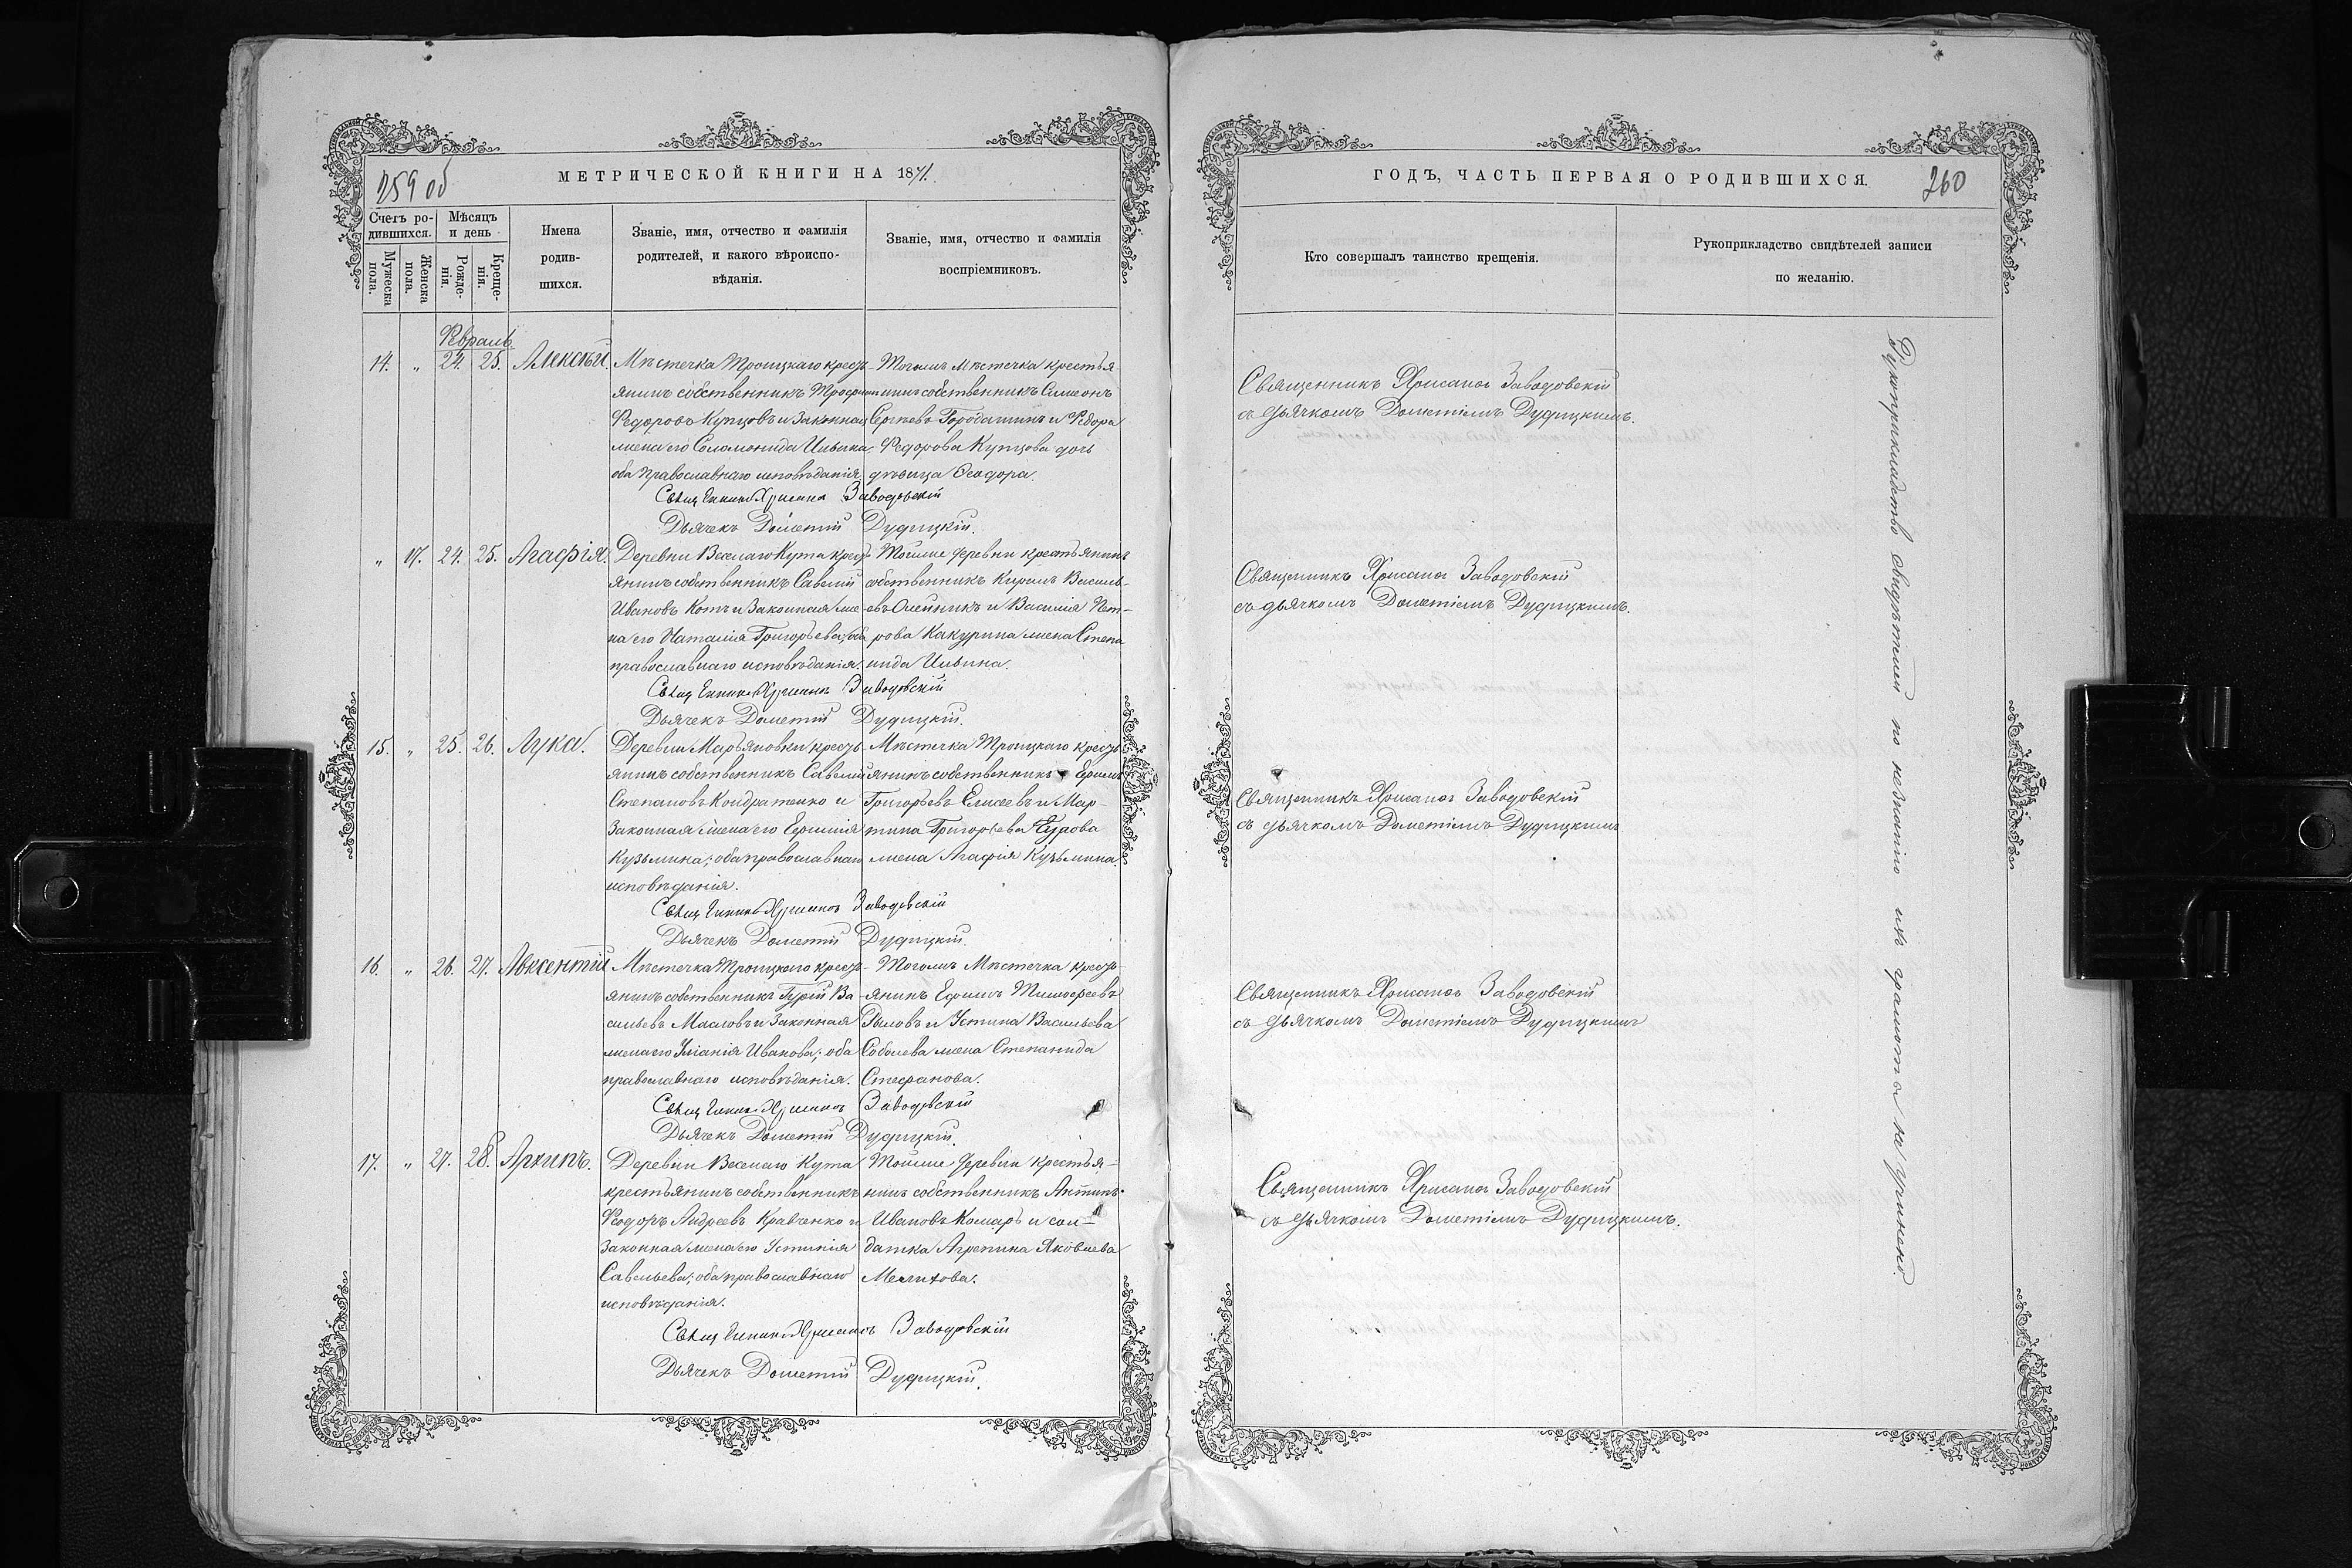 259 об
МЕТРИЧЕСКОЙ КНИГИ НА 1871.
Счетъ ро-
дившихся.
Мѣсяцъ
и день
Мужеска
пола.
Женска
пола.
Рожде-
нія.
Креще-
нія.
Имена
родив-
шихся.
Званіе, имя, отчество и фамилія
родителей, и какого вѣроиспо-
вѣданія.
Званіе, имя, отчество и фамилія
воспріемниковъ.
Февраль
14. „ 24. 25. Алексѣй.
Мѣстечка Троицкаго крестъ-
янинъ собственникъ Трофим
Федоровъ Купцовъ и законная
жена его Соломонида Ильина,
оба православнаго исповѣданія.
Тогожъ Мѣстечка крестья
нинъ собственникъ Симеонъ
Сергѣевъ и Федора
Федорова Купцова дочь
дѣвица Феодора.
Священникъ Хрисанѳ Заводовскій
Дьячекъ Дометій Дудицкій.
„ 17. 24. 25. Агафія.
Деревни Веселаго Кута крест
янинъ собственникъ Савелій
Ивановъ Котъ и законная же-
на его Наталія Григорьева, оба
православнаго исповѣданія.
Тойже деревни крестьянинъ
собственникъ Кирилъ Василь-
евъ Олейникъ и Василія Пет-
рова Какурина жена Степа
нида Ильина.
Священникъ Хрисанѳ Заводовскій
Дьячекъ Дометій Дудицкій.
15. „ 25. 26. Лука.
Деревни Марьяновки кресть-
янинъ собственникъ Савелій
Степановъ Кондратенко и
законная жена его Евгенія
Кузьмина; оба православнаго
исповѣданія.
Мѣстечка Троицкаго кресть
янинъ собственникъ Ефимъ
Григорьевъ Елисѣевъ и Мар-
тина Григорьева
жена Агафія Кузьмина.
Священникъ Хрисанѳ Заводовскій
Дьячекъ Дометій Дудицкій.
16. „ 26. 27. Авксентій
Мѣстечка Троицкаго кресть-
янинъ собственникъ Гурій Ва
сильевъ Масловъ и законная
жена его Уліанія Иванова; оба
православнаго исповѣданія.
Тогожъ Мѣстечка кресть-
янинъ Ефимъ Тимофеевъ
и Устина Васильева
Соболева жена Степанида
Стефанова.
Священникъ Хрисанѳ Заводовскій
Дьячекъ Дометій Дудицкій.
17. „ 27. 28. Архипъ.
Деревни Веселаго Кута
крестьянинъ собственникъ
Феодоръ Андреевъ Кравченко и
законная жена его Устинія
Савельева; оба православнаго
исповѣданія.
Тойже деревни крестья-
нинъ собственникъ Антипъ
Ивановъ Комаръ и сол-
датка Агрепина Яковлева
Мелихова.
Священникъ Хрисанѳ Заводовскій
Дьячекъ Дометій Дудицкій.
ГОДЪ, ЧАСТЬ ПЕРВАЯ О РОДИВШИХСЯ.
260
Кто совершалъ таинство крещенія.
Рукоприкладство свидѣтелей записи
по желанію.
Священникъ Хрисанѳ Заводовскій
съ дьячкомъ Дометіемъ Дудицкимъ.
Священникъ Хрисанѳ Заводовскій
съ дьячкомъ Дометіемъ Дудицкимъ.
Священникъ Хрисанѳ Заводовскій
съ дьячкомъ Дометіемъ Дудицкимъ
Священникъ Хрисанѳ Заводовскій
съ дьячкомъ Дометіемъ Дудицкимъ
Священникъ Хрисанѳ Заводовскій
съ дьячкомъ Дометіемъ Дудицкимъ.
Рукоприкладство свидѣтелей по незнанію ихъ грамоты не учинено.